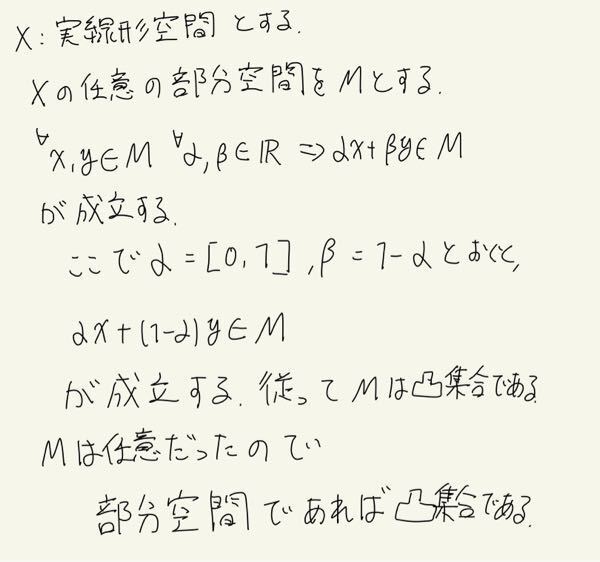 X:実線形空間とする.
Xの任意の部分空間をMとする.
∀x,y∈M ∀α,β∈ℝ ⇒ αx+βy∈M
が成立する.
ここでα=[0,1],β=1-αとおくと,
αx+(1-α)y∈M
が成立する.従ってMは凸集合である.
Mは任意だったので
部分空間であれば凸集合である.